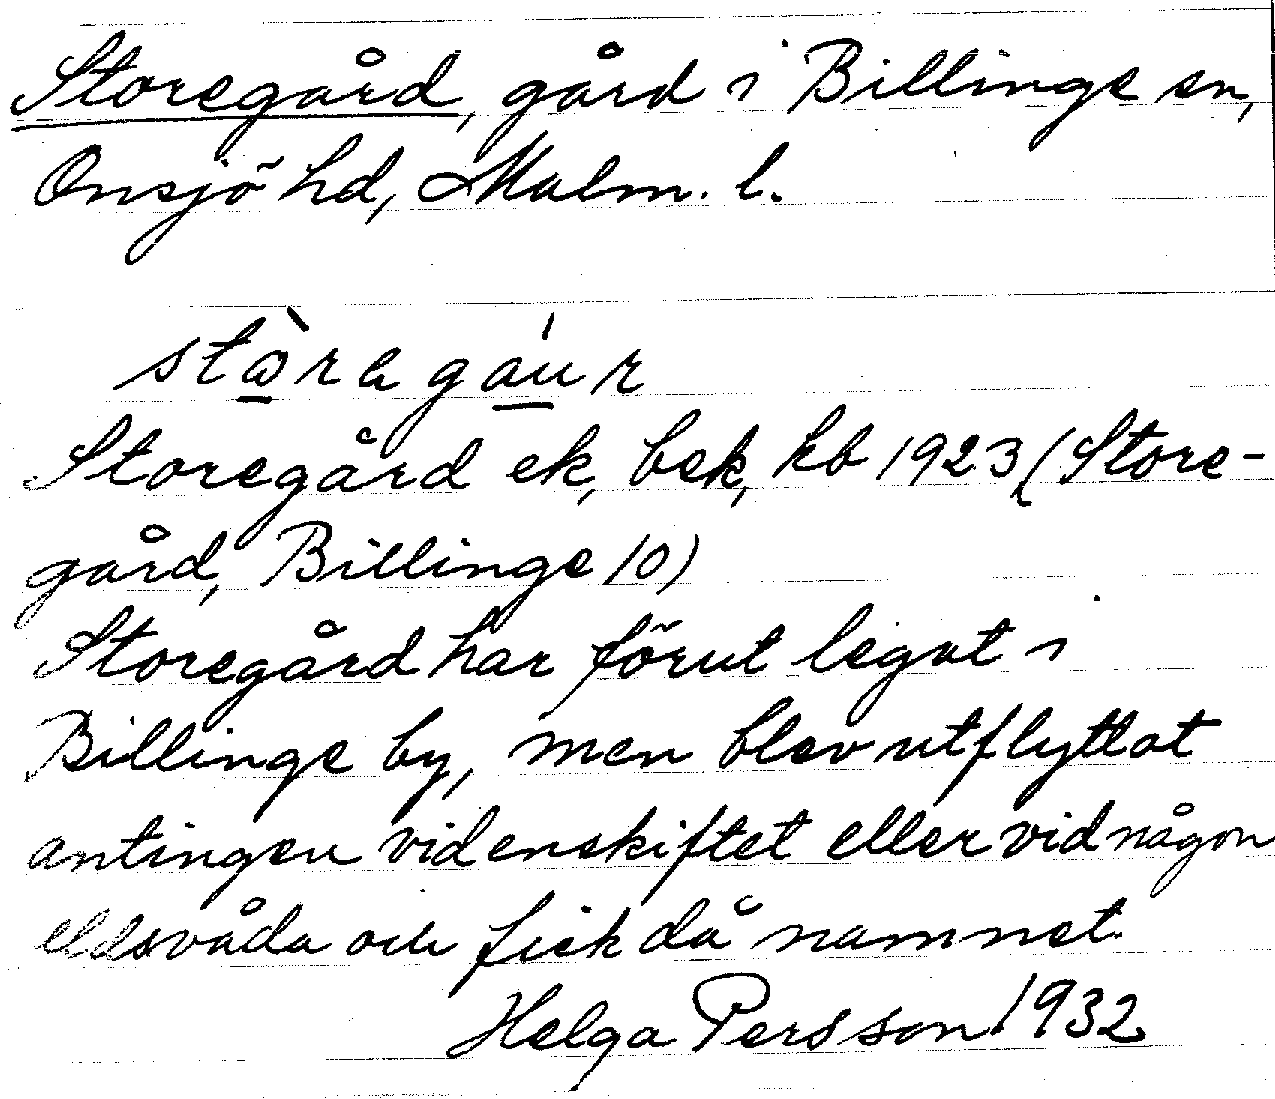 Storegård, gård i Billinge sn,
Onsjö hd, Malm. l.
Storegård ek, bek, kb 1923 (Store-
gård, Billinge 10)
Storegård har förut legat i
Billinge by, men blev utflyttat
antingen vid enskiftet eller vid någon
eldsvåda och fick då namnet.
Helga Persson 1932